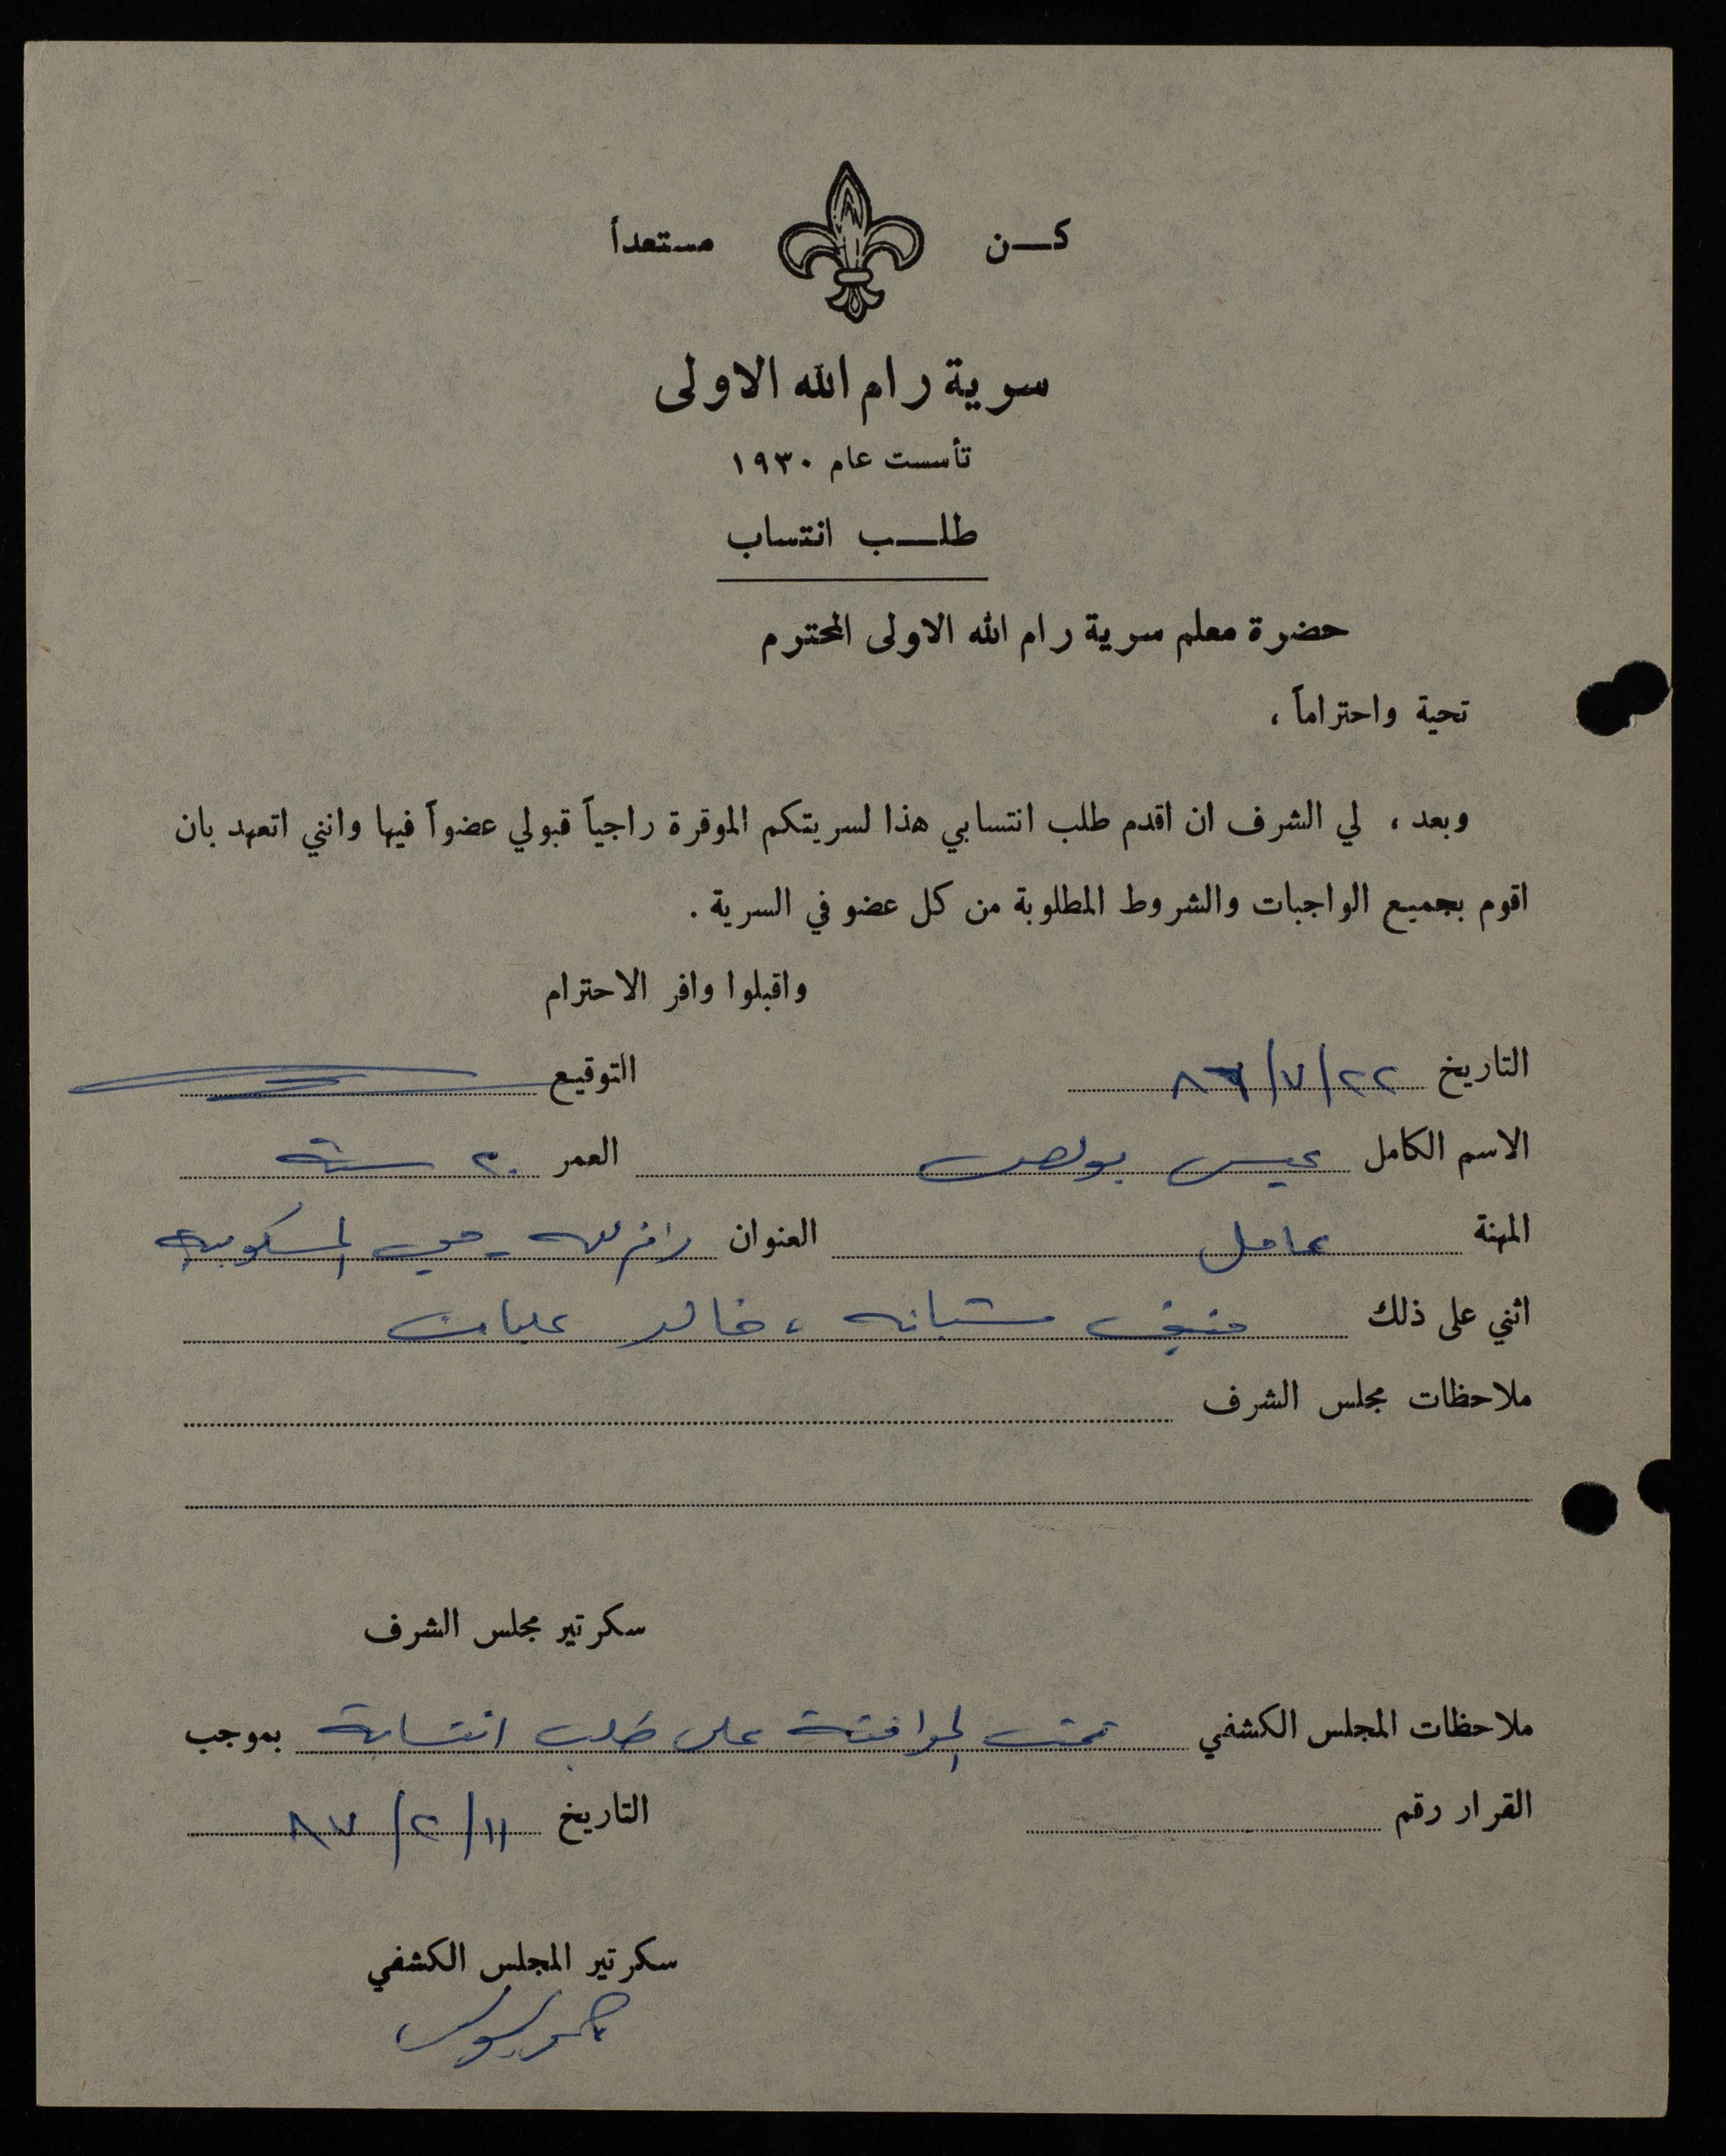 كن مستعداً
سرية رام الله الاولى
تأسست عام ١٩٣٠
طلب انتساب
حضرة معلم سرية رام الله الاولى المحترم
تحية واحتراماً ،
وبعد ، لي الشرف ان اقدم طلب انتسابي هذا لسريتكم الموقرة راجياً قبولي عضواً فيها وانني اتعهد بان
اقوم بجميع الواجبات والشروط المطلوبة من كل عضو في السرية .
واقبلوا وافر الاحترام
التاريخ ٢٢/٧/٨٦ التوقيع
الاسم الكامل عيسى بولص العمر ٢٠ سنة
المهنة عامل العنوان رام الله - حي المسكوبية
اثني على ذلك شبانه ، خالد عليان
ملاحظات مجلس الشرف
سكرتير مجلس الشرف
ملاحظات المجلس الكشفي تمت الموافقة على طلب انتسابة بموجب
القرار رقم التاريخ ١١/٢/٨٧
سكرتير المجلس الكشفي